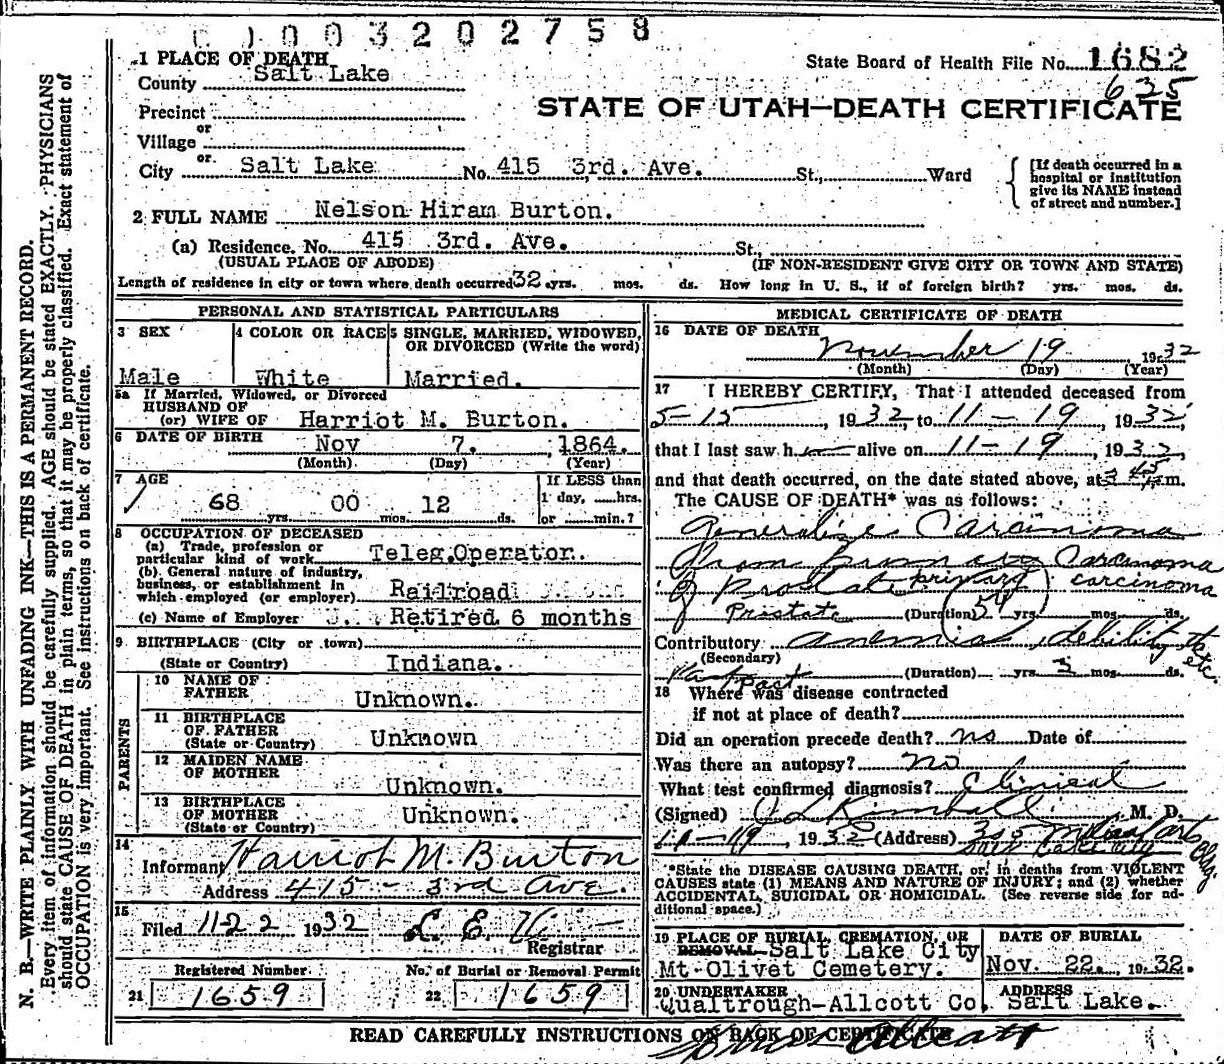 0003202758
1 PLACE OF DEATH
County Salt Lake
State Board of Health File No. 1682
635
Precinct
STATE OF UTAH—DEATH CERTIFICATE
or
Village
or
City Salt Lake No. 415 3rd. Ave. St., Ward
[If death occurred in a
hospital or institution
give its NAME instead
of street and number.]
2 FULL NAME Nelson Hiram Burton.
(a) Residence. No. 415 3rd. Ave. St.,
(USUAL PLACE OF ABODE) (IF NON-RESIDENT GIVE CITY OR TOWN AND STATE)
Length of residence in city or town where death occurred 32 yrs. mos. ds. How long in U. S., if of foreign birth? yrs. mos. ds.
PERSONAL AND STATISTICAL PARTICULARS
3 SEX
Male
4 COLOR OR RACE
White
5 SINGLE, MARRIED, WIDOWED,
OR DIVORCED (Write the word)
Married.
5a If Married, Widowed, or Divorced
HUSBAND OF
(or) WIFE OF Harriot M. Burton.
6 DATE OF BIRTH Nov 7. 1864.
(Month) (Day) (Year)
7 AGE
68 yrs. 00 mos. 12 ds.
If LESS than
1 day, hrs.
or min.?
8 OCCUPATION OF DECEASED
(a) Trade, profession or
particular kind of work Teleg.Operator.
(b) General nature of industry,
business, or establishment in
which employed (or employer) Railroad
(c) Name of Employer Retired 6 months
9 BIRTHPLACE (City or town)
(State or Country) Indiana.
PARENTS
10 NAME OF
FATHER Unknown.
11 BIRTHPLACE
OF FATHER
(State or Country) Unknown
12 MAIDEN NAME
OF MOTHER Unknown.
13 BIRTHPLACE
OF MOTHER
(State or Country) Unknown.
14
Informant Harriot M. Burton
Address 415 - 3rd Ave.
15
Filed 11-22 1932 L. E.
Registrar
Registered Number
21 1659
No. of Burial or Removal Permit
22 1659
MEDICAL CERTIFICATE OF DEATH
16 DATE OF DEATH
November 19 1932
(Month) (Day) (Year)
17 I HEREBY CERTIFY, That I attended deceased from
5-15, 1932, to 11-19 1932,
that I last saw h alive on 11-19, 1932,
and that death occurred, on the date stated above, at 3 45 m.
The CAUSE OF DEATH* was as follows:
Generalize Carcinoma
from primary Carcinoma
of Prostate primary carcinoma
Prostate (Duration) 5 yrs. mos. ds.
Contributory anemia, debility
(Secondary) etc.
(Duration) yrs. 3 mos. ds.
18 Where was disease contracted
if not at place of death?
Did an operation precede death? no Date of
Was there an autopsy? no
What test confirmed diagnosis? Clinical
(Signed) Kimball, M. D.
11-19 1932 (Address) 305 Medical Arts Bldg
Salt Lake City
*State the DISEASE CAUSING DEATH, or, in deaths from VIOLENT
CAUSES state (1) MEANS AND NATURE OF INJURY; and (2) whether
ACCIDENTAL, SUICIDAL OR HOMICIDAL. (See reverse side for ad-
ditional space.)
19 PLACE OF BURIAL, CREMATION, OR
REMOVAL Salt Lake City
Mt. Olivet Cemetery.
DATE OF BURIAL
Nov. 22., 1932.
20 UNDERTAKER
Qualtrough-Allcott Co.
ADDRESS
Salt Lake.
READ CAREFULLY INSTRUCTIONS ON BACK OF CERTIFICATE
N. B.—WRITE PLAINLY WITH UNFADING INK—THIS IS A PERMANENT RECORD.
Every item of information should be carefully supplied. AGE should be stated EXACTLY. PHYSICIANS
should state CAUSE OF DEATH in plain terms, so that it may be properly classified. Exact statement of
OCCUPATION is very important. See instructions on back of certificate.